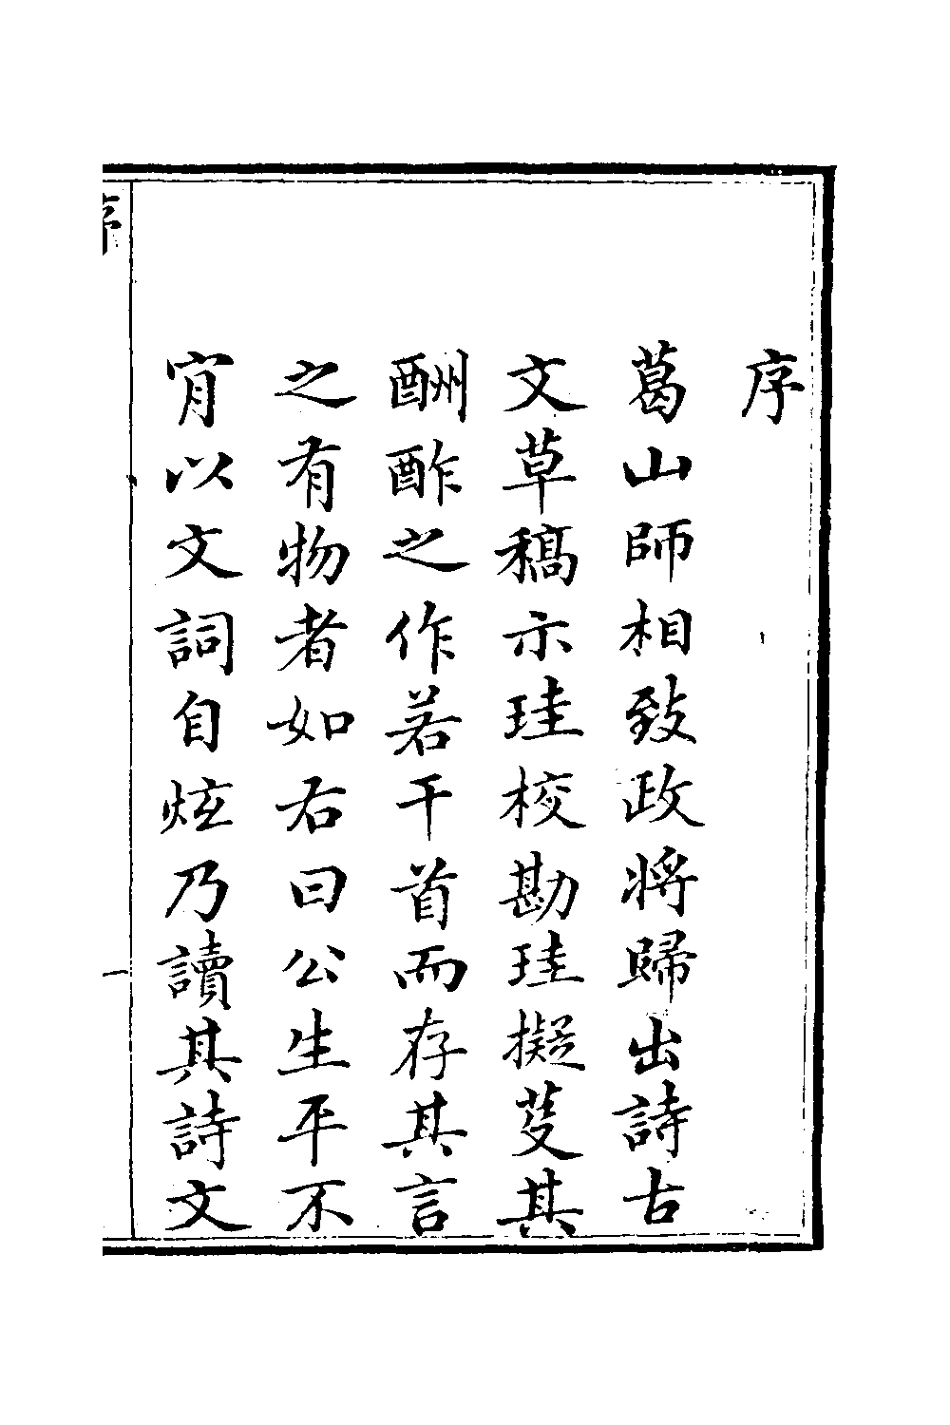 序
葛山師相致政將歸出詩古
文草稿示珪校勘珪擬芟其
酬酢之作若干首而存其言
之有物者如右曰公生平不
肎以文詞自炫乃讀其詩文
序
一